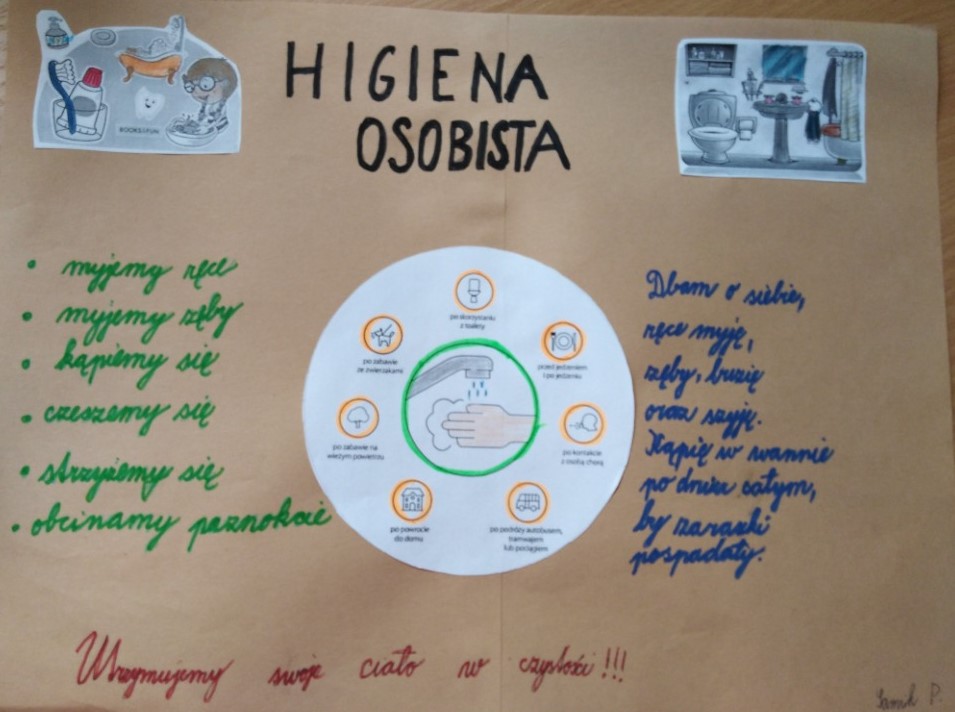 HIGIENA
OSOBISTA
• myjemy ręce
• myjemy zęby
• kąpiemy się
• czeszemy się
• strzyżemy się
• obcinamy paznokcie
po skorzystaniu
z toalety
przed jedzeniem
i po jedzeniu
po kontakcie
z osobą chorą
po podróży autobusem,
tramwajem
lub pociągiem
po powrocie
do domu
po zabawie na
świeżym powietrzu
po zabawie
ze zwierzakami
Dbam o siebie,
ręce myję,
zęby, buzię
oraz szyję.
Kąpię w wannie
po dniu całym,
by zarazki
pospadały.
Utrzymujemy swoje ciało w czystości!!!
P.